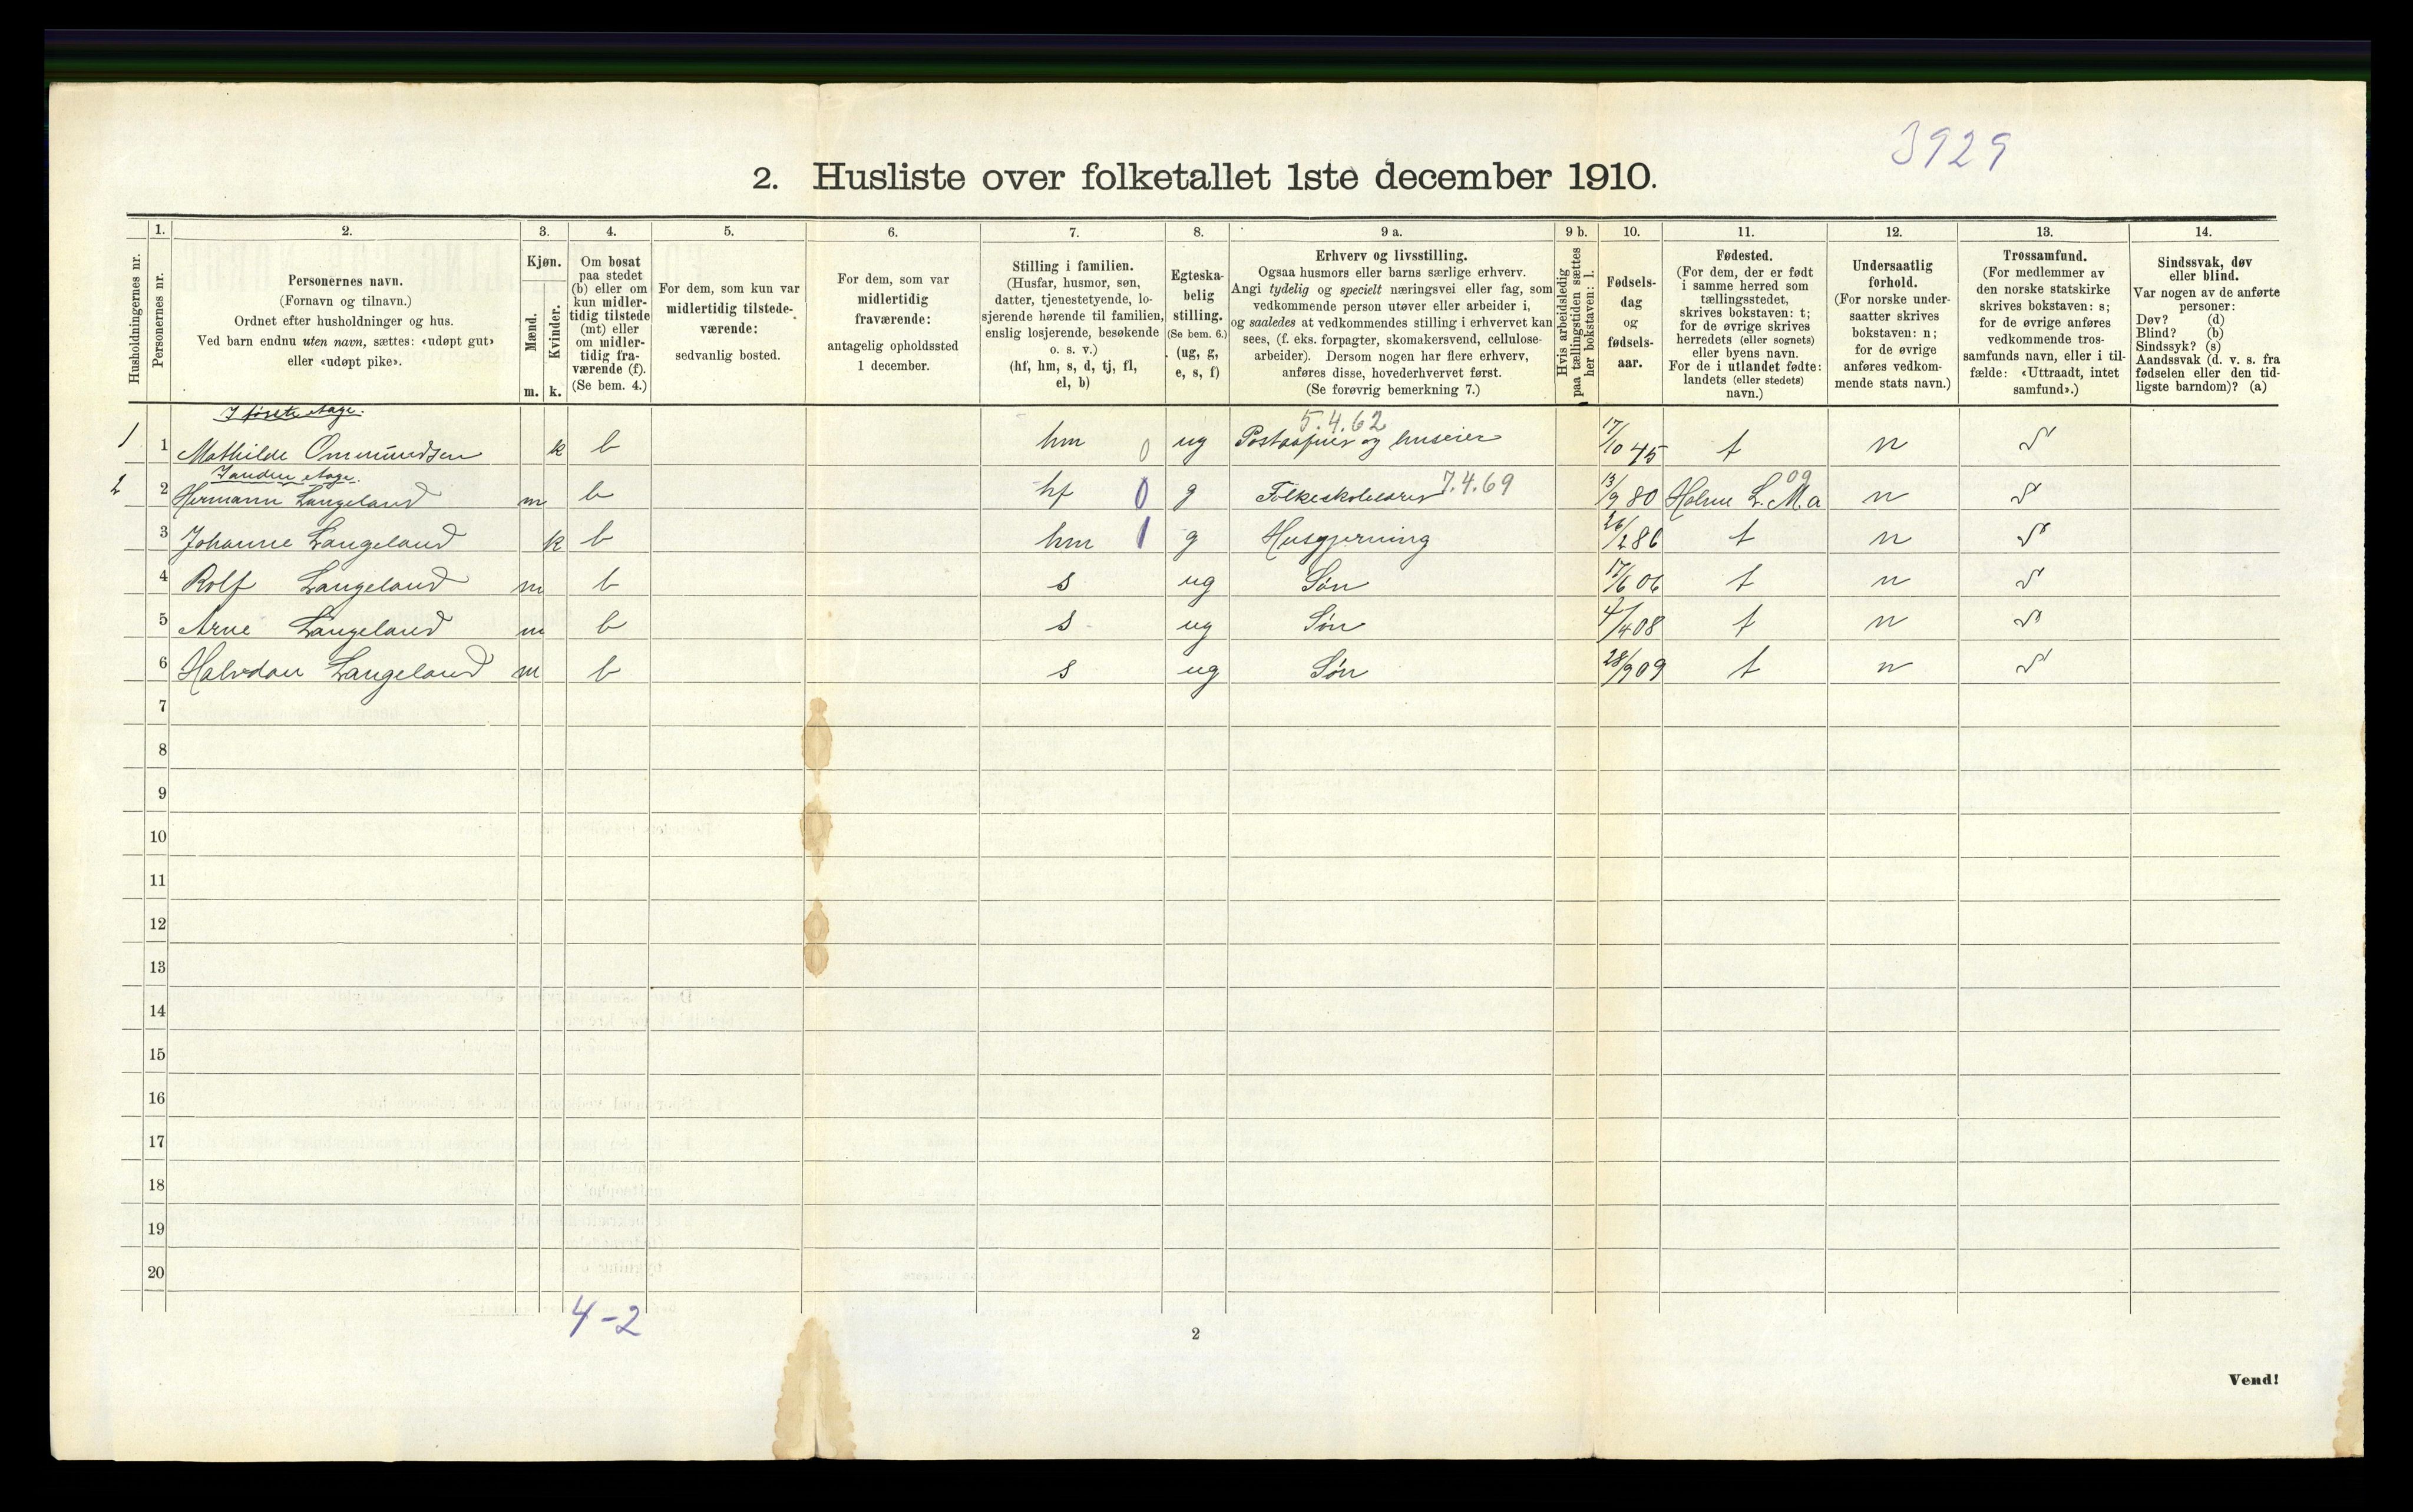 3929
2. Husliste over folketallet 1ste december 1910.
Husholdningernes nr.
1.
Personernes nr.
2.
Personernes navn.
(Fornavn og tilnavn.)
Ordnet efter husholdninger og hus.
Ved barn endnu uten navn, sættes: «udøpt gut»
eller «udøpt pike».
3.
Kjøn.
Mænd.
Kvinder.
m. k.
4.
Om bosat
paa stedet
(b) eller om
kun midler-
tidig tilstede
(mt) eller
om midler-
tidig fra-
værende (f).
(Se bem. 4.)
5.
For dem, som kun var
midlertidig tilstede-
værende:
sedvanlig bosted.
6.
For dem, som var
midlertidig
fraværende:
antagelig opholdssted
1 december.
7.
Stilling i familien.
(Husfar, husmor, søn,
datter, tjenestetyende, lo-
sjerende hørende til familien,
enslig losjerende, besøkende
o. s. v.)
(hf, hm, s, d, tj, fl,
el, b)
8.
Egteska-
belig
stilling.
(Se bem. 6.)
(ug, g,
e, s, f)
9 a.
Erhverv og livsstilling.
Ogsaa husmors eller barns særlige erhverv.
Angi tydelig og specielt næringsvei eller fag, som
vedkommende person utøver eller arbeider i,
og saaledes at vedkommendes stilling i erhvervet kan
sees, (f. eks. forpagter, skomakersvend, cellulose-
arbeider). Dersom nogen har flere erhverv,
anføres disse, hovederhvervet først.
(Se forøvrig bemerkning 7.)
9 b.
Hvis arbeidsledig
paa tællingstiden sættes
her bokstaven: l.
10.
Fødsels-
dag
og
fødsels-
aar.
11.
Fødested.
(For dem, der er født
i samme herred som
tællingsstedet,
skrives bokstaven: t;
for de øvrige skrives
herredets (eller sognets)
eller byens navn.
For de i utlandet fødte:
landets (eller stedets)
navn.)
12.
Undersaatlig
forhold.
(For norske under-
saatter skrives
bokstaven: n;
for de øvrige
anføres vedkom-
mende stats navn.)
13.
Trossamfund.
(For medlemmer av
den norske statskirke
skrives bokstaven: s;
for de øvrige anføres
vedkommende tros-
samfunds navn, eller i til-
fælde: «Uttraadt, intet
samfund».)
14.
Sindssvak, døv
eller blind.
Var nogen av de anførte
personer:
Døv? (d)
Blind? (b)
Sindssyk? (s)
Aandssvak (d. v. s. fra
fødselen eller den tid-
ligste barndom)? (a)
I første etage. 5.4.62
1 1 Mathilde Ommundsen k b hm 0 ug Postaapner og huseier 17/10 45 t n S
I anden etage. 09
2 2 Hermann Langeland m b hf 0 g Folkeskolelærer 7.4.69 13/9 80 Holme L.M.a n S
3 Johanne Langeland k b hm 1 g Husgjerning 26/2 86 t n S
4 Rolf Langeland m b s ug Søn 17/6 06 t n S
5 Arne Langeland m b s ug Søn 4/4 08 t n S
6 Halvdan Langeland m b s ug Søn 28/9 09 t n S
7
8
9
10
11
12
13
14
15
16
17
18
19
20
4-2
2
Vend!